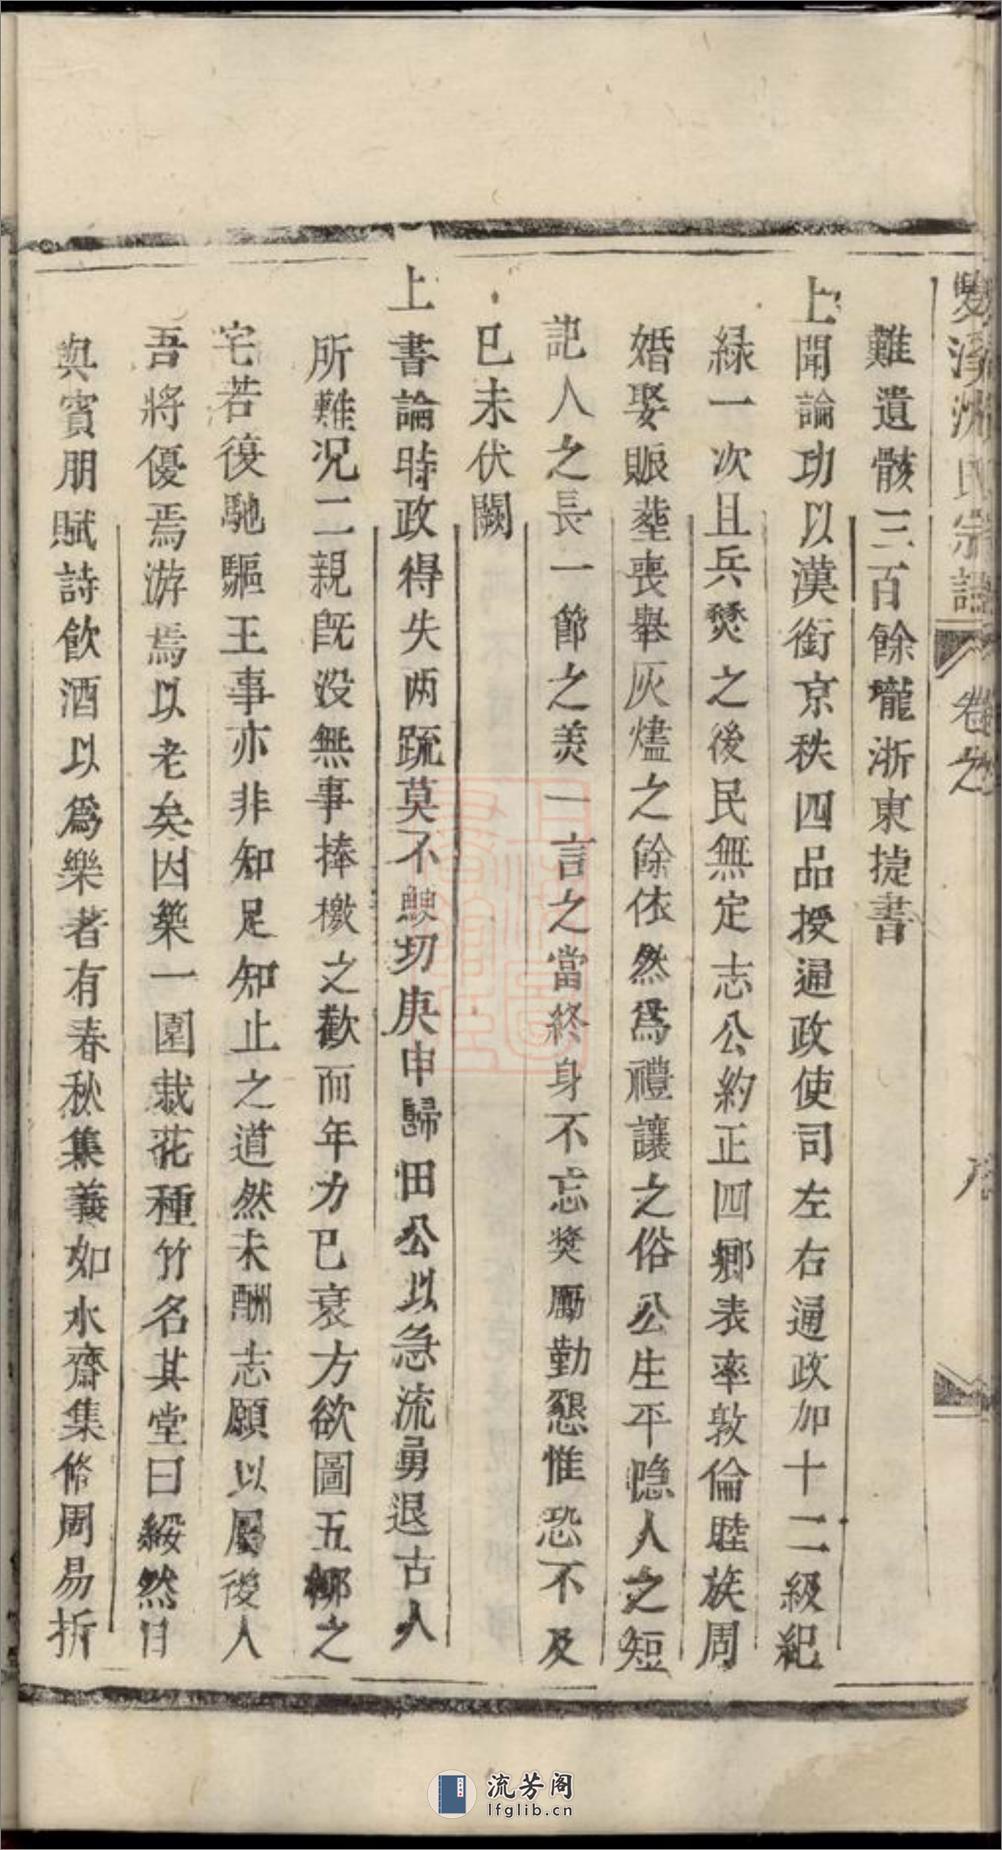 雙溪沈氏宗譜 卷之
難遺骸三百餘壠浙東捷書
上聞論功以漢銜京秩四品授通政使司左右通政加十二級紀
緑一次且兵燹之後民無定志公約正四鄉表率敦倫睦族周
婚娶賑塟喪舉灰燼之餘依然爲禮讓之俗公生平隐人之短
記人之長一節之羙一言之當終身不忘奬厲勤懇惟恐不及
已未伏闕
上書論時政得失两疏莫不鯁切庚申歸田公以急流勇退古人
所難况二親旣没無事捧檄之歡而年力已衰方欲圖五柳之
宅若復馳驅王事亦非知足知止之道然未酬志願以屬後人
吾將優焉游焉以老矣因築一園栽花種竹名其堂曰綏然日
與賓朋賦詩飲酒以爲樂著有春秋集義如水齋集脩周易折
流芳阁
lfglib.cn